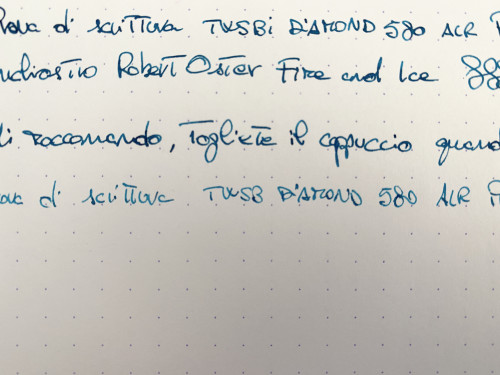 Prova di scrittura TWSBi DiAMOND 580 ALR
inchiostro Robert Oster Fire and Ice 888
Mi raccomando, Togliete il cappuccio quando
Prova di scrittura TWSB DiAMOND 580 ALR